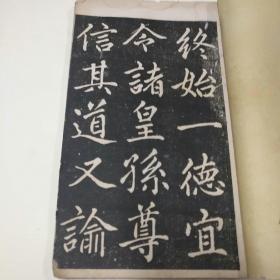 終始一德宜
令諸皇孫尊
信其道又諭